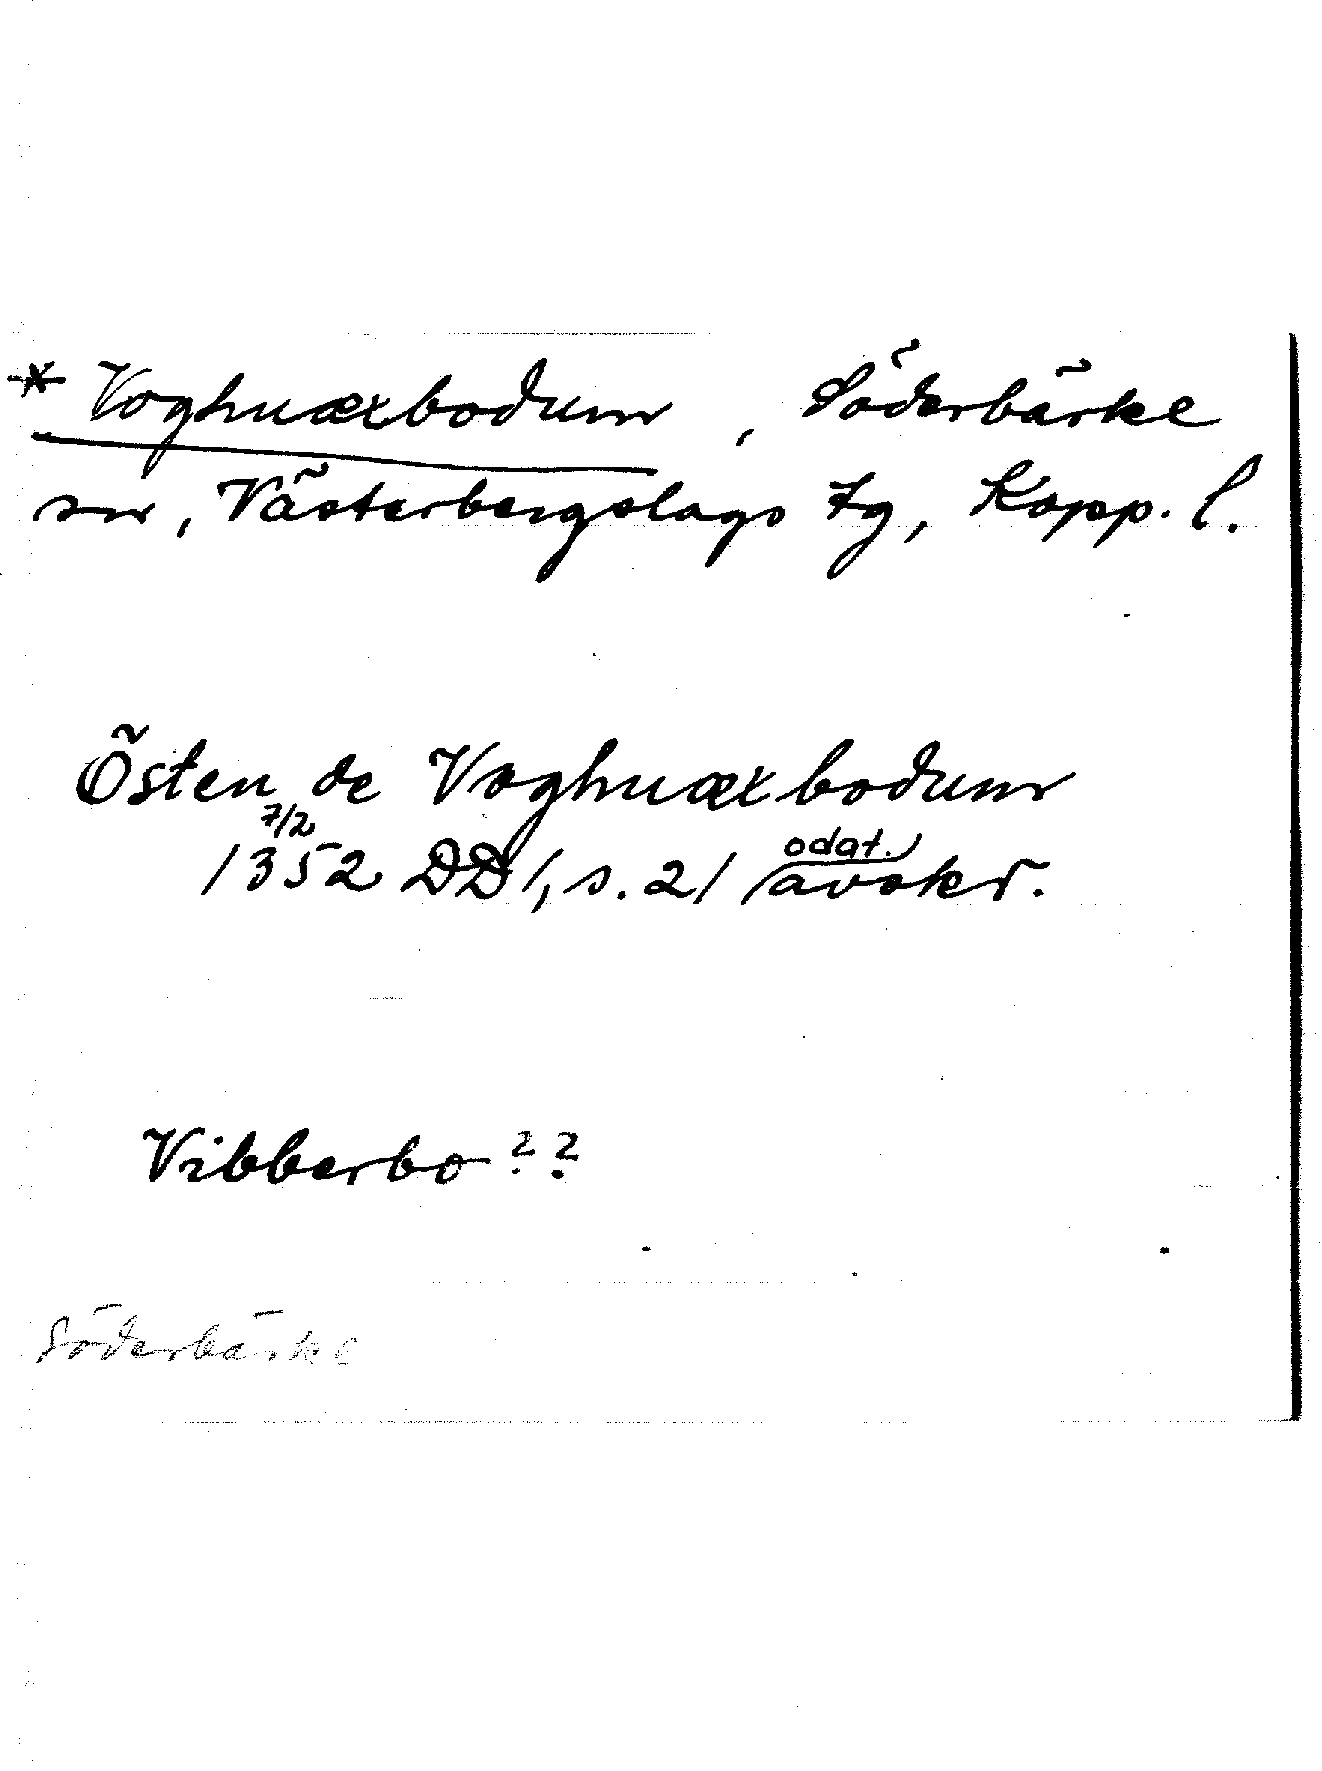 * Voghuærbodum, Söderbärke
sn, Västerbergslags tg, Kopp. l.
Östen de Voghuærbodum
7/2
1352 DD 1, s. 21 odat. avskr.
Vibberbo ??
Söderbärke